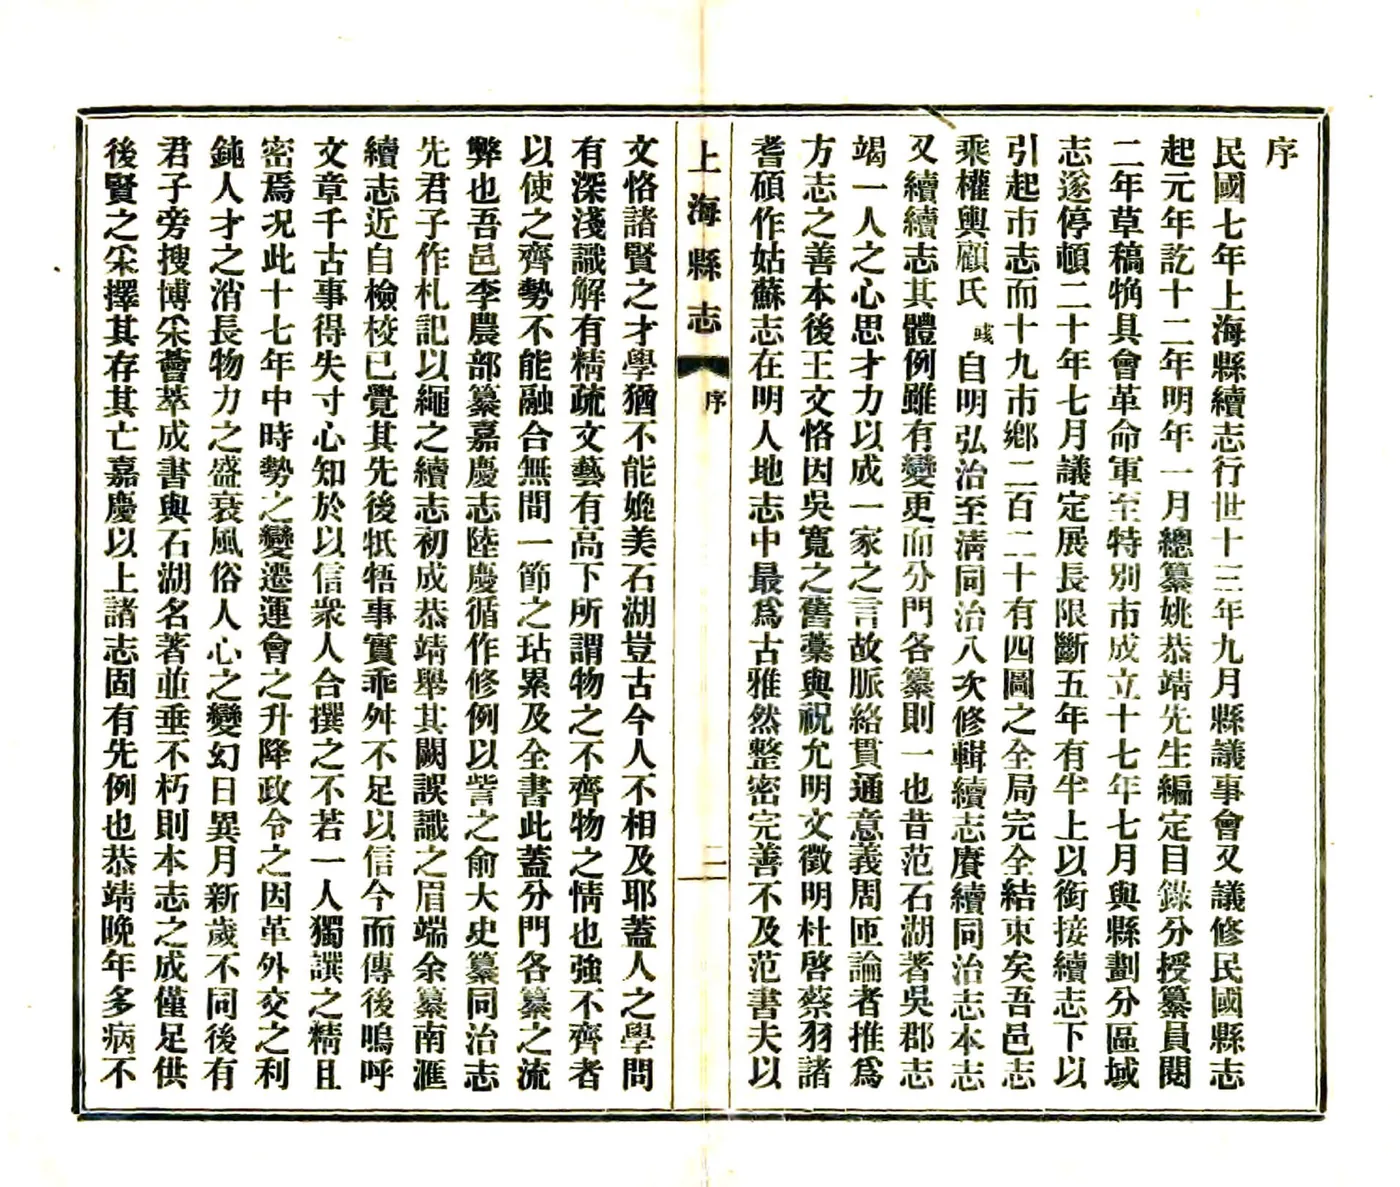 序
民國七年上海縣續志行世十三年九月縣議事會又議修民國縣志
起元年訖十二年明年一月總纂姚恭靖先生編定目錄分授纂員閱
二年草稿觕具會革命軍至特別市成立十七年七月與縣劃分區域
志遂停頓二十年七月議定展長限斷五年有半上以銜接續志下以
引起市志而十九市鄉二百二十有四圖之全局完全結束矣吾邑志
乘權輿顧氏彧自明弘治至淸同治八次修輯續志賡續同治志本志
又續續志其體例雖有變更而分門各纂則一也昔范石湖著吳郡志
竭一人之心思才力以成一家之言故脈絡貫通意義周匝論者推爲
方志之善本後王文恪因吳寬之舊藁與祝允明文徵明杜啓蔡羽諸
耆碩作姑蘇志在明人地志中最爲古雅然整密完善不及范書夫以
上海縣志
序
二
文恪諸賢之才學猶不能媲美石湖豈古今人不相及耶蓋人之學問
有深淺識解有精疏文藝有高下所謂物之不齊物之情也強不齊者
以使之齊勢不能融合無間一節之玷累及全書此蓋分門各纂之流
弊也吾邑李農部纂嘉慶志陸慶循作修例以訾之俞大史纂同治志
先君子作札記以繩之續志初成恭靖舉其闕誤識之眉端余纂南滙
續志近自檢校已覺其先後牴牾事實乖舛不足以信今而傳後嗚呼
文章千古事得失寸心知於以信衆人合撰之不若一人獨譔之精且
密焉况此十七年中時勢之變遷運會之升降政令之因革外交之利
鈍人才之消長物力之盛衰風俗人心之變幻日異月新歲不同後有
君子旁搜博采薈萃成書與石湖名著並垂不朽則本志之成僅足供
後賢之采擇其存其亡嘉慶以上諸志固有先例也恭靖晚年多病不